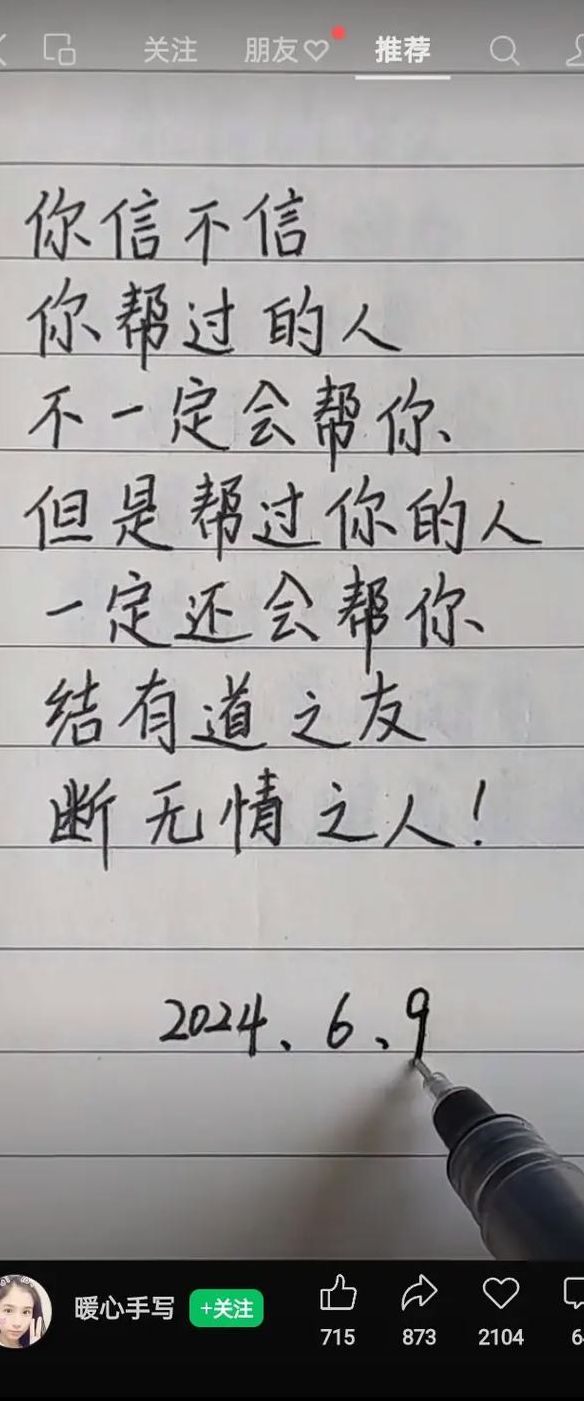 关注 朋友 推荐
你信不信
你帮过的人
不一定会帮你
但是帮过你的人
一定还会帮你
结有道之友
断无情之人!
2024、6、9
暖心手写 +关注
715 873 2104